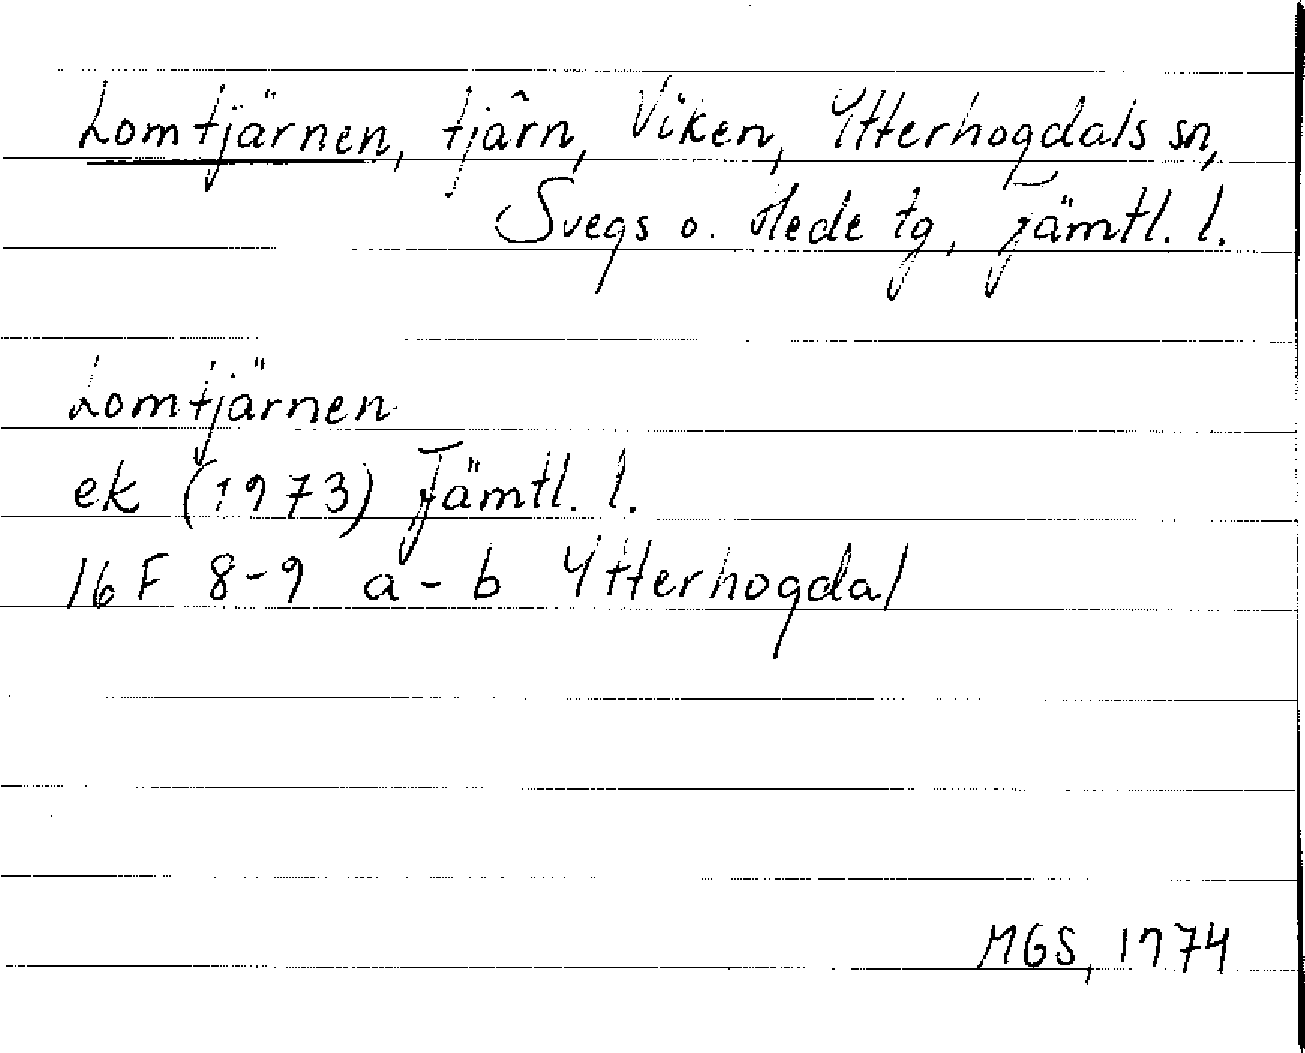 Lomtjärnen, tjärn, Viken, Ytterhogdals sn,
Svegs o. Hede tg, Jämtl. l.
Lomtjärnen
ek (1973) Jämtl. l.
16 F 8-9 a-b Ytterhogdal
MGS, 1974